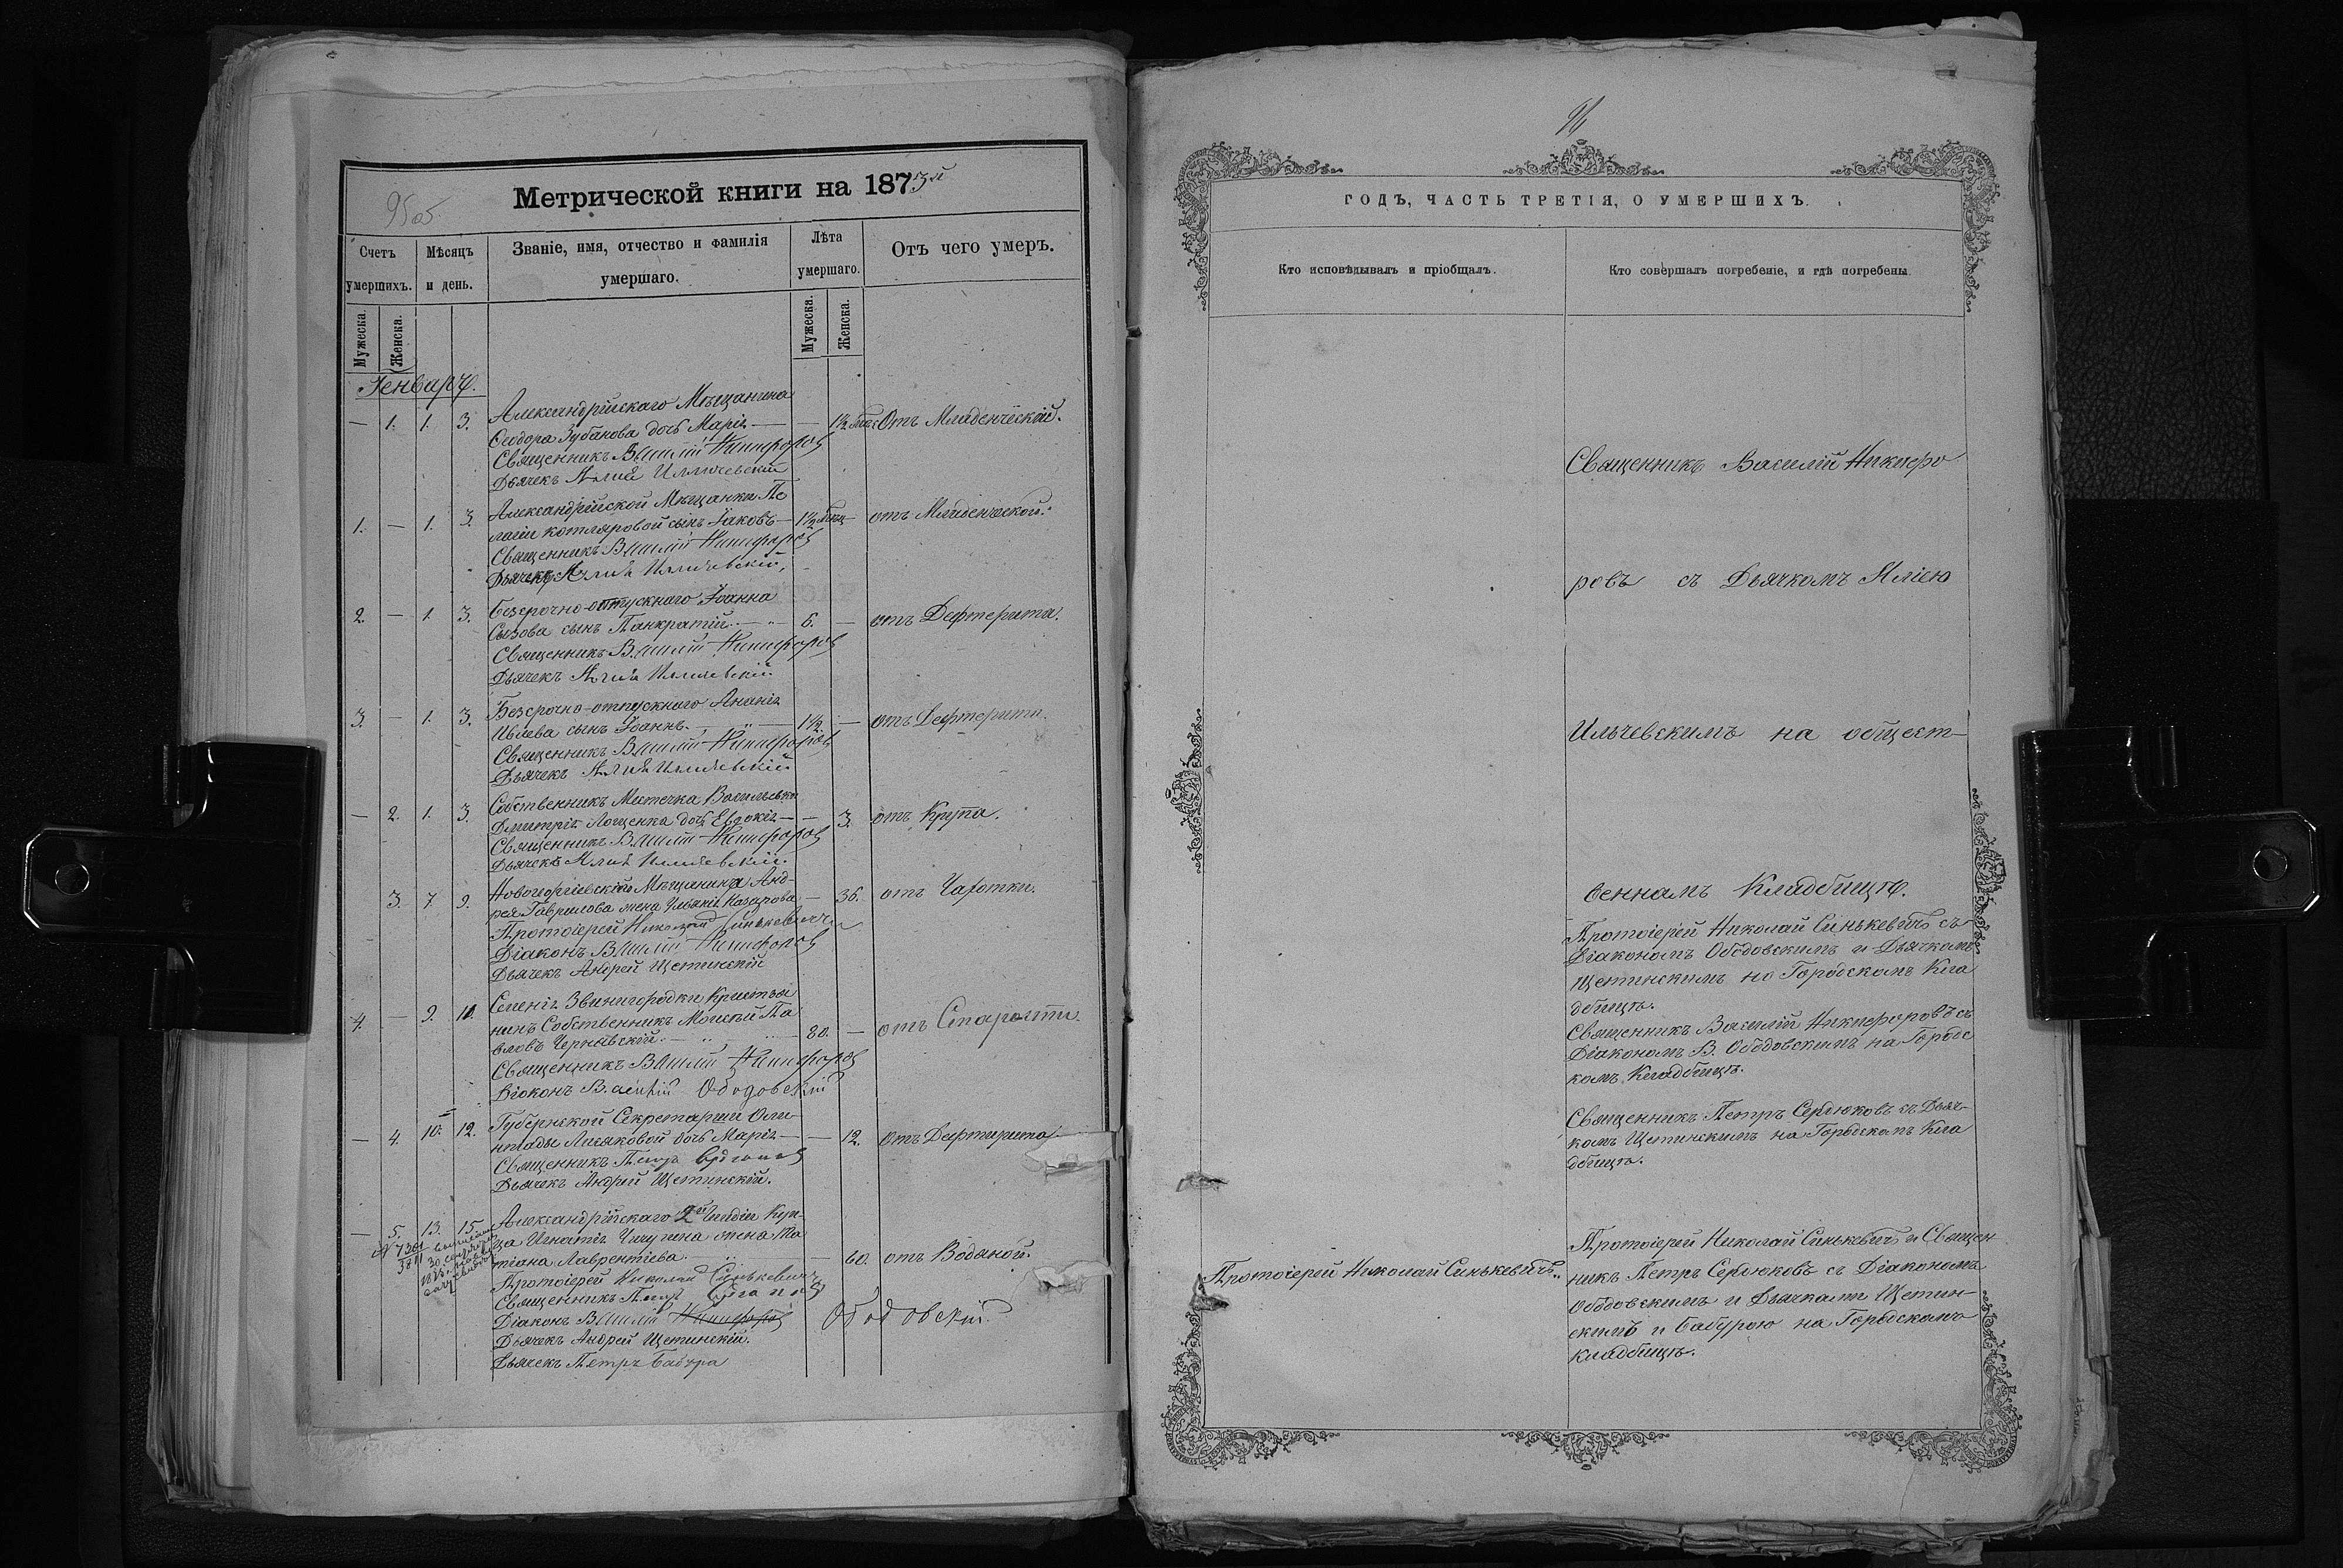 95об.
Метрической книги на 1873й
Счетъ умершихъ.
Мѣсяцъ и день.
Званіе, имя, отчество и фамилія умершаго.
Лѣта умершаго.
Отъ чего умеръ.
Мужеска.
Женска.
Мужеска.
Женска.
Генварь.
Александрійскаго Мѣщанина
— 1. 1. 3. Ѳеодора Зубанова дочь Марія — — 1½ мѣс. Отъ Младенческой.
Священникъ Василій Никифоровъ
Дьячекъ Илія Ильчевскій
Александрійской Мѣщанки Пе
1. — 1. 3. лагіи Котляровой сынъ Іаковъ — 1½ мѣсяц — отъ Младенческой.
Священникъ Василій Никифоровъ
Дьячекъ Илія Ильчевскій,
Безсрочно-отпускнаго Іоанна
2. — 1. 3. Сызова сынъ Панкратій — „ — 6. — отъ Дефтерита.
Священникъ Василій Никифоровъ
Дьячекъ Илія Ильчевскій
Безсрочно-отпускнаго Ананія
3. — 1. 3. сынъ Іоаннъ. — „ — 1½ — отъ Дефтерита.
Священникъ Василій Никифоровъ
Дьячекъ Илія Ильчевскій
Собственникъ Местечка Васильевки
— 2. 1. 3. Дмитрія Лощенка дочь Евдокія — — 3. отъ Крупа.
Священникъ Василій Никифоровъ
Дьячекъ Илія Ильчевскій.
Новогеоргіевскаго Мѣщанина Анд-
3. 7. 9. рея Гаврилова жена Ульянія Назарова — 36. отъ Чахотки.
Протоіерей Николай Синькевичъ
Діаконъ Василій Никифоровъ
Дьячекъ Андрей Щетинскій
Селенія Звинигородки Крестья
4. — 9. 10. нинъ Собственникъ Моисей Па
вловъ Чернявскій. — „ — 80. — отъ Старости
Священникъ Василій Никифоровъ
Діаконъ Василій Ободовскій
Губернской Секретарши Оли-
— 4. 10. 12. мпіады Лисяковой дочь Марія — — 12. отъ Дефтерита
Священникъ Петръ Сердюковъ
Дьячекъ Андрей Щетинскій.
Александрійскаго 2й Гильдіи Куп-
— 5. 13. 15. ца Игнатія Чигрина жена Та
тіана Лаврентіева — „ — 60. отъ Водяной.
Протоіерей Николай Синькевичъ
Священникъ Петръ Сердюковъ
Діаконъ Василій Никифоровъ Ободовскій
Дьячекъ Андрей Щетинскій.
Дьячекъ Петръ Бабура
96
ГОДЪ, ЧАСТЬ ТРЕТІЯ, О УМЕРШИХЪ.
Кто исповѣдывалъ и пріобщалъ.
Кто совершалъ погребеніе, и гдѣ погребены.
Священникъ Василій Никифо
ровъ съ Дьячкомъ Иліею
Ильчевскимъ на общест-
веннамъ Кладбищѣ.
Протоіерей Николай Синькевичъ съ
Діакономъ Ободовскимъ и Дьячкамъ
Щетинскимъ на Городскомъ Кла
дбищѣ.
Священникъ Василій Никифоровъ съ
Діакономъ В. Ободовскимъ на Городс
комъ Кладбищѣ.
Священникъ Петръ Сердюковъ съ Дьяч-
комъ Щетинскимъ на Городскомъ Кла
дбищѣ.
Протоіерей Николай Синькевичъ.
Протоіерей Николай Синькевичъ и Священ
никъ Петръ Сердюковъ съ Діакономъ
Ободовскимъ и Дьячками Щетин-
скимъ и Бабурою на Городскомъ
кладбищѣ.